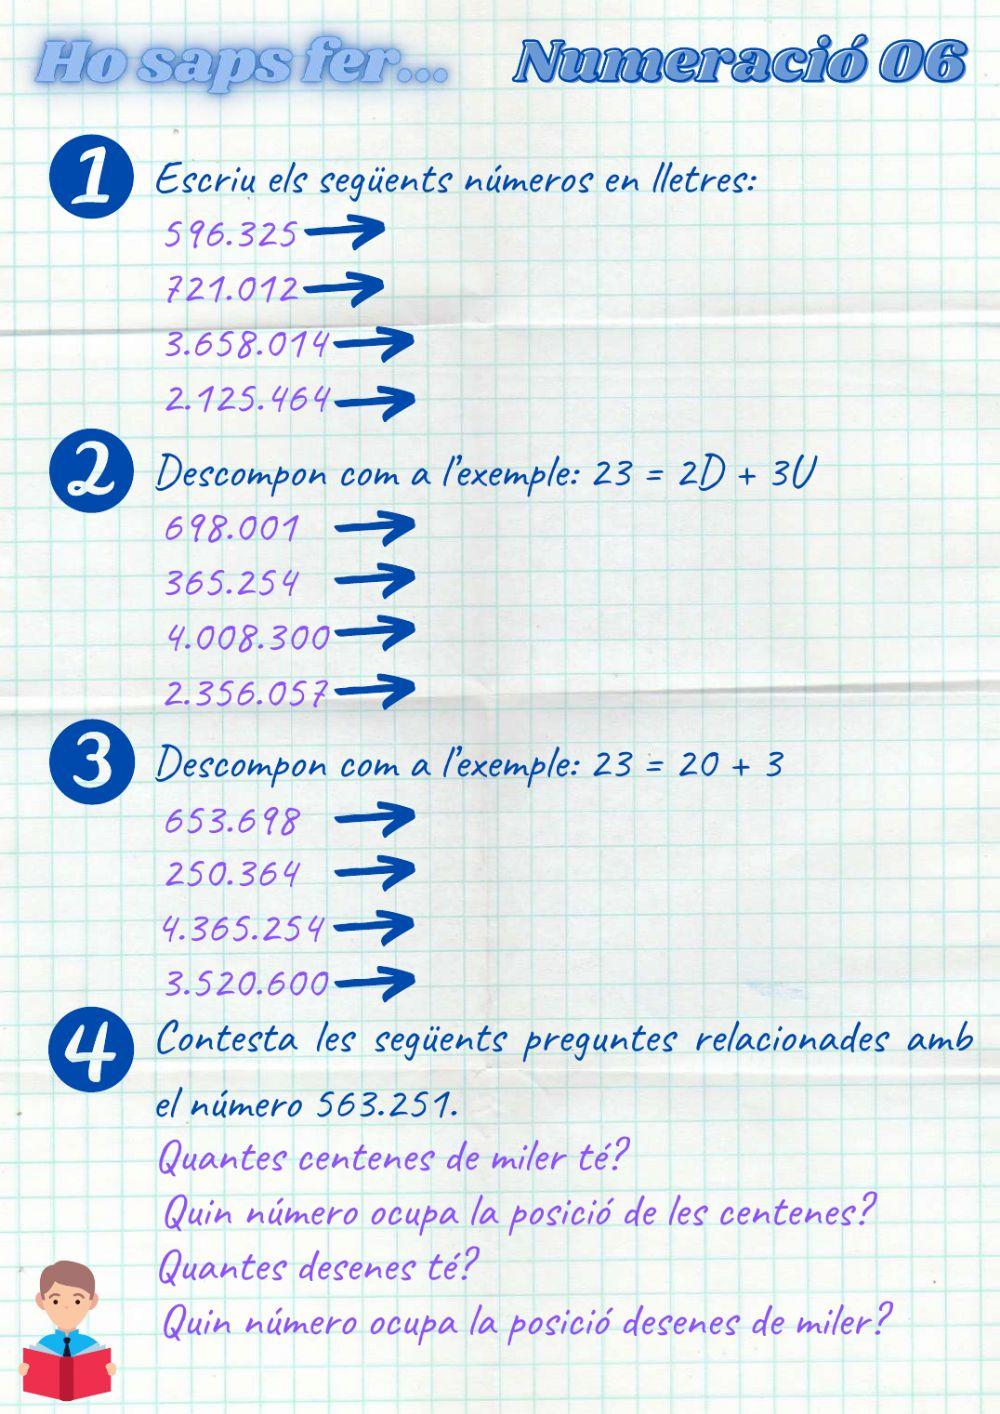 Ho saps fer... Numeració 06
1 Escriu els següents números en lletres:
596.325
721.012
3.658.014
2.125.464
2 Descompon com a l'exemple: 23 = 2D + 3U
698.001
365.254
4.008.300
2.356.057
3 Descompon com a l'exemple: 23 = 20 + 3
653.698
250.364
4.365.254
3.520.600
4 Contesta les següents preguntes relacionades amb
el número 563.251.
Quantes centenes de miler té?
Quin número ocupa la posició de les centenes?
Quantes desenes té?
Quin número ocupa la posició desenes de miler?